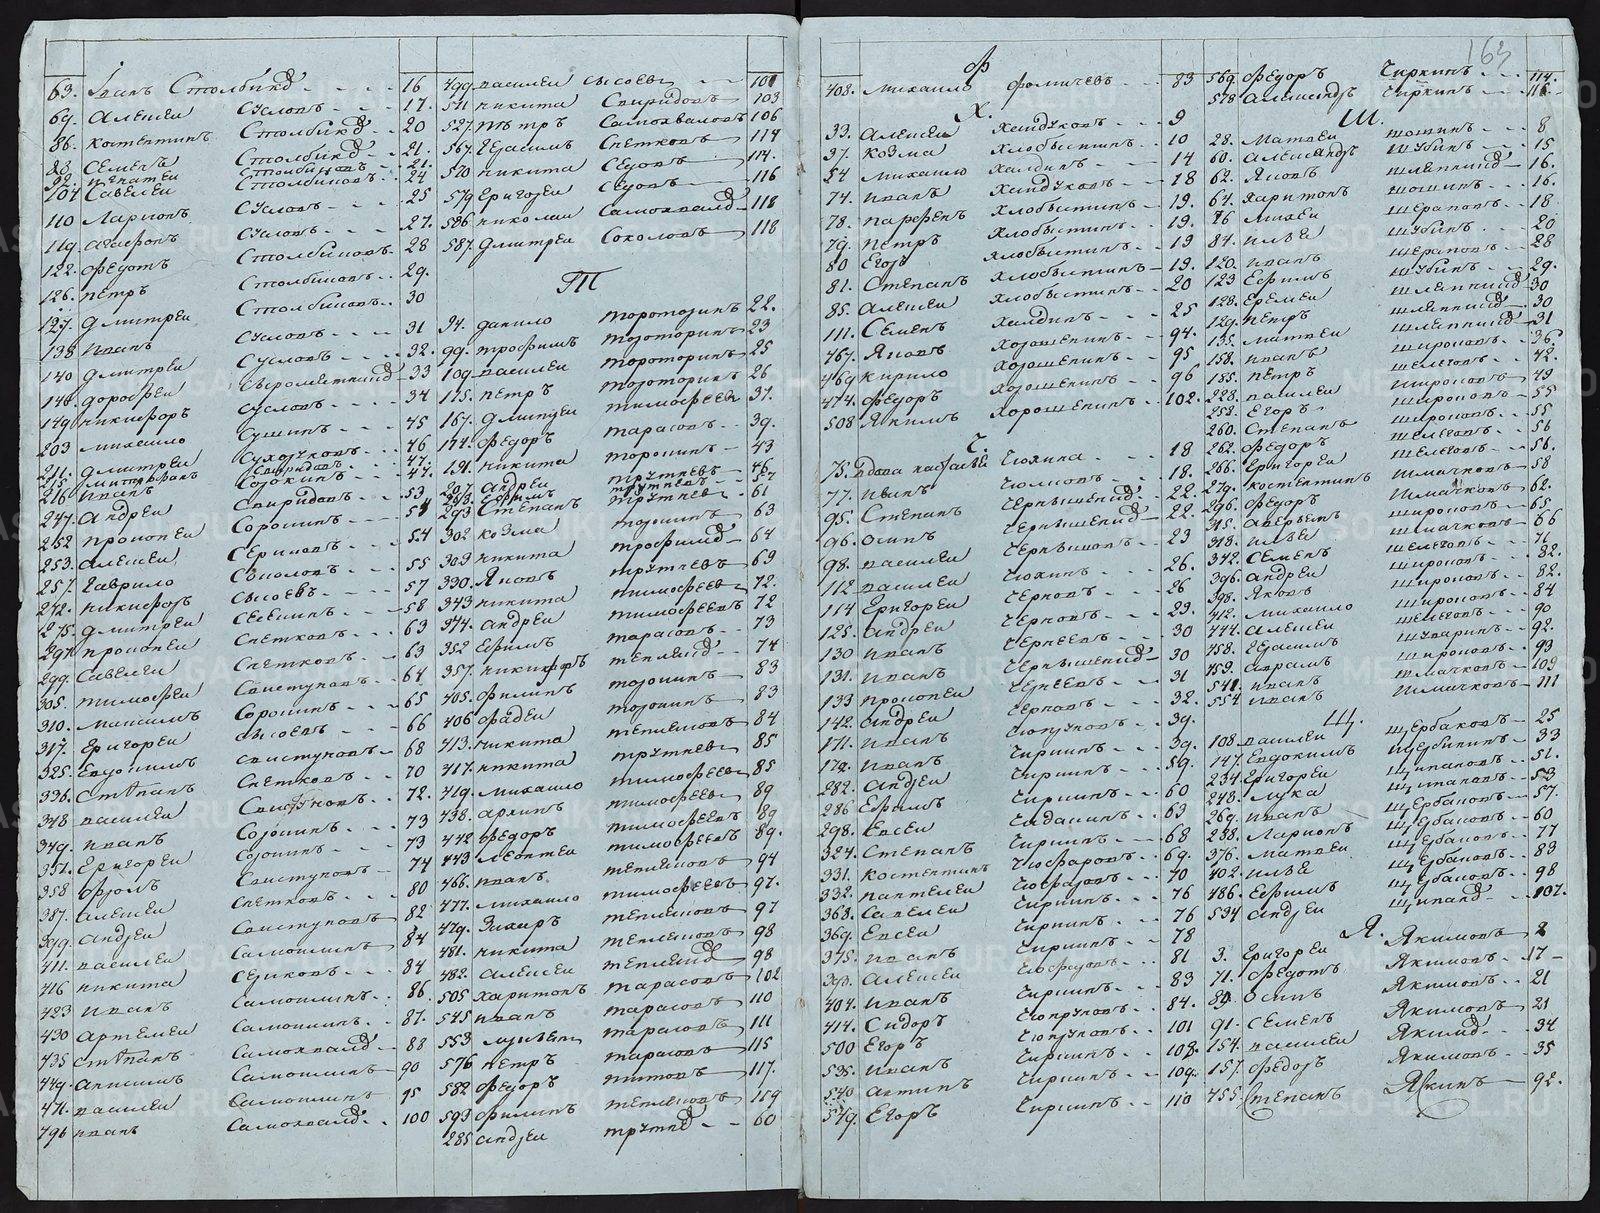 63. Иванъ Столбикѡ 16
69. Алексеи Сусловъ 17.
86. Костентинъ Столбикѡ 20
88. Семенъ Столбикѡ 21.
92. Игнатеи Столбиковъ 21.
104 Савелеи Столбиковъ 24
110 Ларионъ Сусловъ 25
119 Агафонъ Сусловъ 27.
122. Федотъ Столбиковъ 28
126. Петръ Столбиковъ 29.
127. Дмитреи Столбиковъ 30
138 Иванъ Сусловъ 31
140 Дмитреи Сусловъ 32.
146. Дорофеи 33
149 Никифоръ Сусловъ 34
203 Михаило Сушинъ 45
211. Дмитреи Сухоруковъ 46
215. Митрофанъ Свиридовъ 47
216 Иванъ Сорокинъ 47.
247. Андреи Свиридовъ 53
252 Прокопеи Сорокинъ 54
253. Алексеи Сериковъ 54
257. Гаврило Соколовъ 55
272. Никифоръ Сысоевъ 57
275. Дмитреи 58
297 Прокопеи Спетковъ 63
299. Савелеи Спетковъ 63
305. Тимофеи Свистуновъ 64
310. Максимъ Сорокинъ 65
317. Григореи Сысоевъ 66
325. Евдокимъ Свистуновъ 68
336. Степанъ Спетковъ 70
348 Василеи Свистуновъ 72.
349. Иванъ Сорокинъ 73
351. Григореи Сорокинъ 73
358 Фролъ Свистуновъ 74
387. Алексеи Спетковъ 80
399. Андреи Свистуновъ 82
411. Василеи Самошкинъ 84
416 Никита Сериковъ 84
423 Иванъ Самошкинъ 86.
430 Артемеи Самошкинъ 87.
435 Степанъ Самохвалѡ 88
449. Анисимъ Самошкинъ 90
471. Василеи Самошкинъ 95
496 Иванъ Самохвалѡ 100
499 Василеи Сысоевъ 101
511 Никита Свиридовъ 103
527. Петръ Самохваловъ 106
567. Герасимъ Спетковъ 114
570 Никита Седовъ 114.
579 Григореи Седовъ 116
586 Николаи Самохвалѡ 118
587. Дмитреи Соколовъ 118
Т
94. Данило Тороторинъ 22.
99. Трофимъ Тороторинъ 23
109 Василеи Тороторинъ 25
115. Петръ Тороторинъ 26
167. Дмитреи Тимофеевъ 37.
174. Федоръ Тарасовъ 39.
191. Никита Торошинъ 43
207. Андреи Трутневъ 46
283 Ефимъ Трутневъ 57
293 Степанъ Трутневъ 61
302 Козма Торошинъ 63
303 Никита Трофимѡ 64
330. Яковъ Трутневъ 69
343 Никита Тимофеевъ 72.
344. Андреи Тимофеевъ 72
352 Ефимъ Тарасовъ 73
357. Никифоръ Теплякѡ 74
405. Филипъ Торошинъ 83
406 Фадеи Торошинъ 83
413. Никита Тепляковъ 84
417. Никита Трутневъ 85
419. Михаило Тимофеевъ 85
438. Архипъ Тимофеевъ 89
442 Федоръ Тимофеевъ 89
443 Леонтеи Тимофеевъ 89.
466. Иванъ Тепляковъ 94
477. Михаило Тимофеевъ 97.
479. Захаръ Тепляковъ 97
481. Никита Тепляковъ 98
482. Алексеи Теплякѡ 98
505 Харитонъ Тарасовъ 102
545 Иванъ Тарасовъ 110
553 Тарасовъ 111
576 Петръ Тарасовъ 115
582 Федоръ Титовъ 117.
593 Филипъ Тепляковъ 119
285 Андреи Трутнѡ 60
163
Ф
408. Михаило Фомичевъ 83
Х.
33. Алексеи Хандуковъ 9
37. Козма Хлобыстинъ 10
54 Михаило Халдинъ 14
74. Иванъ Хандуковъ 18
78. Парфенъ Хлобыстинъ 19.
79. Петръ Хлобыстинъ 19.
80 Егоръ Хлобыстинъ 19
81. Степанъ Хлобыстинъ 19.
85. Алексеи Хлобыстинъ 20
111. Семенъ Халдинъ 25
467. Яковъ Хорошенинъ 94.
469 Кирило Хорошенинъ 95
474. Федоръ Хорошенинъ 96
508 Якимъ Хорошенинъ 102.
Ч.
75. Вдова Чюхина 18
77. Иванъ 18.
95. Степанъ Чернышенкѡ 22.
96. Осипъ Чернышенкѡ 22.
98. Василеи 23
112 Василеи Чюхинъ 26.
114 Григореи Черновъ 26
125. Андреи Черновъ 29.
130 Иванъ Чернеевъ 30
131. Иванъ Чернышенкѡ 30
133 Прокопеи Чернеевъ 31
142. Андреи Черновъ 32.
171. Иванъ Чюпруковъ 39.
172. Иванъ Чиркинъ 39.
282. Андреи Чиркинъ 59.
286 Ефимъ Чиркинъ 60
298. Евсеи 63
324. Степанъ Чиркинъ 68
331. Костентинъ Чюфаровъ 69.
332. Пантелеи Чюфаровъ 70
368. Савелеи Чиркинъ 76
369. Евсеи Чиркинъ 76
375. Иванъ Чиркинъ 78
393. Алексеи Чюфаровъ 81
404. Иванъ Чиркинъ 83
414. Сидоръ Чюпруковъ 84.
500 Егоръ Чюпруковъ 101
535. Иванъ Чиркинъ 108.
540 Антипъ Чиркинъ 109.
549. Егоръ Чиркинъ 110
569. Федоръ Чиркинъ 114.
578 Александръ Чиркинъ 116
Ш.
28. Матвеи Шошинъ 8
60. Александръ Шубинъ 15
62. Яковъ 16.
64. Харитонъ Шошинъ 16.
76 Михеи 18
84. Илья Шубинъ 20
120. Иванъ 28
123 Ефимъ Шубинъ 29.
128. Еремеи 30
129. Петръ 30
135. Матвеи 31
158. Иванъ Широковъ 36.
185. Петръ Шелеговъ 42.
228. Василеи Широковъ 49
258. Егоръ Широковъ 55
260. Степанъ Широковъ 55
262. Федоръ Шелеговъ 56
266. Григореи Шелеговъ 56.
279. Костентинъ Шмачковъ 58
296. Федоръ Шмачковъ 62.
315. Аверьянъ Широковъ 65
318. Илья Шмачковъ 66
342. Семенъ Шелеговъ 71
396. Андреи Широковъ 82.
398. Яковъ Широковъ 82.
412. Михаило Широковъ 84
444. Алексеи Шелеговъ 90
458. Герасимъ Шуваринъ 92.
459. Аврамъ Широковъ 93
541 Иванъ Шмачковъ 109
554 Иванъ Шмачковъ 111
Щ.
108. Василеи Щербаковъ 25
147. Евдокимъ Щербининъ 33
234 Григореи Щипановъ 51.
248. Лука Щипановъ 53
269. Иванъ Щербаковъ 57.
288. Ларионъ Щербаковъ 60
376. Матвеи Щербаковъ 77
402. Илья Щербаковъ 83
486. Ефимъ Щербаковъ 98
534 Андреи Щипанѡ 107.
Я.
3. Григореи Якимовъ 2
71. Федотъ Якимовъ 17
89. Осипъ Якимовъ 21
91. Семенъ Якимовъ 21
154. Василеи Якимѡ 34
157. Федоръ Якимовъ 35
455. Степанъ Якинъ 92.